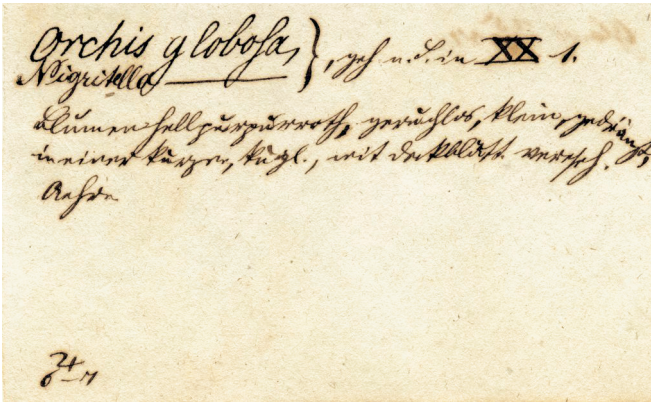 Orchis globosa,
Nigritella ——— }, geh. n. L. in XX 1.
Blumen hellpurpurroth, geruchlos, klein, gedrängt,
in einer kurzen, kugl., mit deckblätt. verseh.
Aehre
♃
6–7